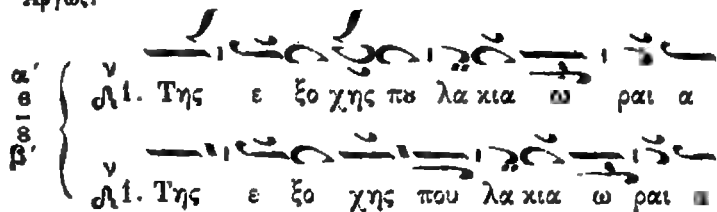 Ἀργῶς.
α′
6
8
β′
ν
1. Της ε ξο χης πȣ λα κια ω ραι α
ν
1. Της ε ξο χης που λα κια ω ραι α